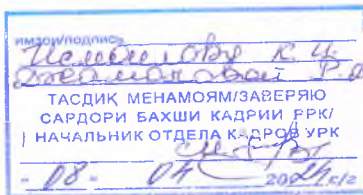 имзои/подпись
Исмоилову К. И.
Джамоловой Р. А
ТАСДИҚ МЕНАМОЯМ/ЗАВЕРЯЮ
САРДОРИ БАХШИ КАДРИИ РРК/
НАЧАЛЬНИК ОТДЕЛА КАДРОВ УРК
- 08 - 04 2024 с/г